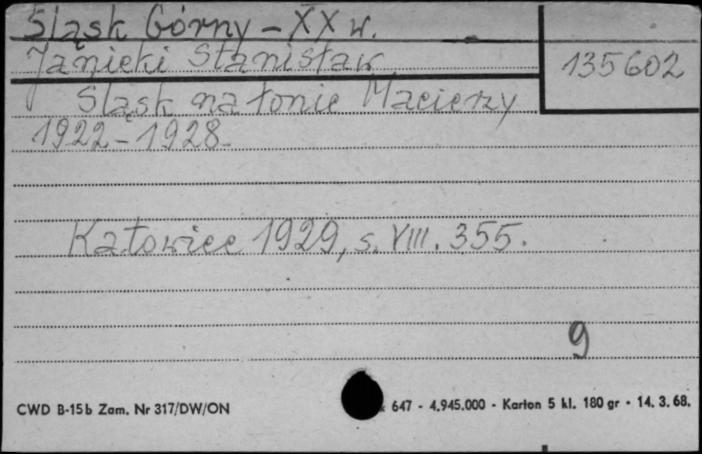 Śląsk Górny - XX w.
Janicki Stanisław
135602
Śląsk na łonie Macierzy
1922-1928.
Katowice 1929, s. VIII. 355.
9
CWD B-15b Zam. Nr 317/DW/ON
647 - 4.945.000 - Karton 5 kl. 180 gr - 14. 3. 68.